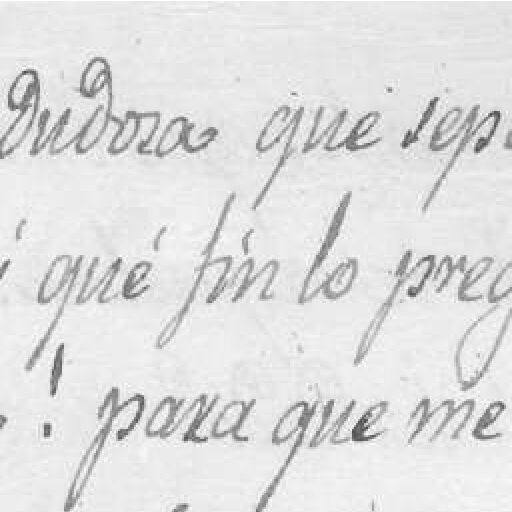 dudosa que sep
i qué fin lo preg
! para que me